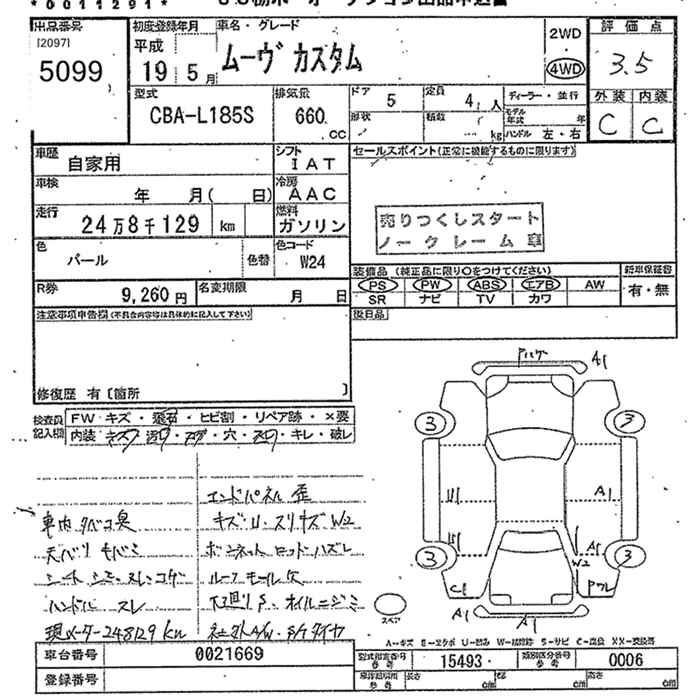 *0011291*
出品番号
[2097]
5099
初度登録年月
平成
19 5月
車名・グレード
ムーヴ カスタム
2WD
4WD
評価点
3.5
外装 内装
C C
型式
CBA-L185S
排気量
660 cc
ドア 5
定員 4 人
形状
積数 kg
ディーラー・並行
モデル年式 年
ハンドル 左・右
車歴 自家用
シフト IAT
車検 年 月( 日)
冷房 AAC
走行 24万8千129 km
燃料 ガソリン
色 パール
色替
色コード W24
R券 9,260円
名変期限 月 日
セールスポイント(正常に機能するものに限ります)
売りつくしスタート
ノークレーム車
装備品 (純正品に限り○をつけてください)
新車保証書
PS PW ABS エアB AW
有・無
SR ナビ TV カワ
後日品
注意事項申告欄(不具合内容等は具体的に記入して下さい)
修復歴 有〔箇所 〕
検査員記入欄
FW キズ・飛石・ヒビ割・リペア跡・×要
内装 キズ・汚・スレ・穴・コゲ・キレ・破レ
車内 タバコ臭
天バリ モバミ
シート シミ・スレ・コゲ
ハンドル スレ
現メーター248129km
エンドパネル 歪
キズ・U・スリキズ W2
ボンネット ロッド ハズレ
ルーフ モール 欠
下廻りS・オイルニジミ
社外A/W・S/Tタイヤ
A1
3
3
A1
A1
3
3
W2
C1
A1
A1
スペア
A--キズ E--エクボ U--凹み W--補修跡 S--サビ C--腐蝕 XX--交換済
車台番号 0021669
型式指定番号 参考 15493
類別区分番号 参考 0006
登録番号
車庫証明用 参考 長さ cm 幅 cm 高さ cm